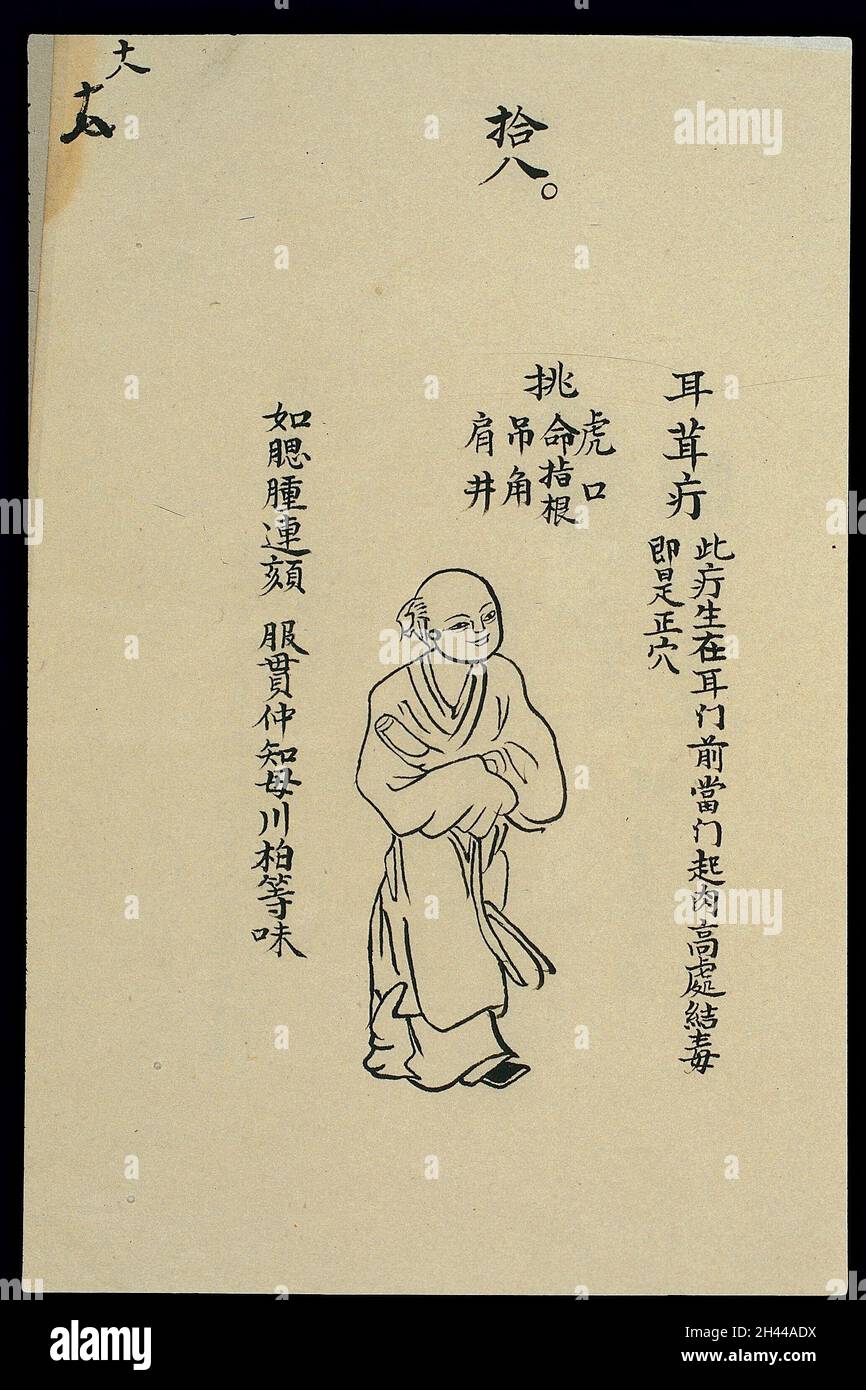 十八
拾八。
耳茸疔
此疔生在耳门前當门起肉高處結毒
即是正穴
挑
虎口
命指根
吊角
肩井
如腮腫連頦 服貫仲知母川柏等味
alamy
Image ID: 2H44ADX
www.alamy.com